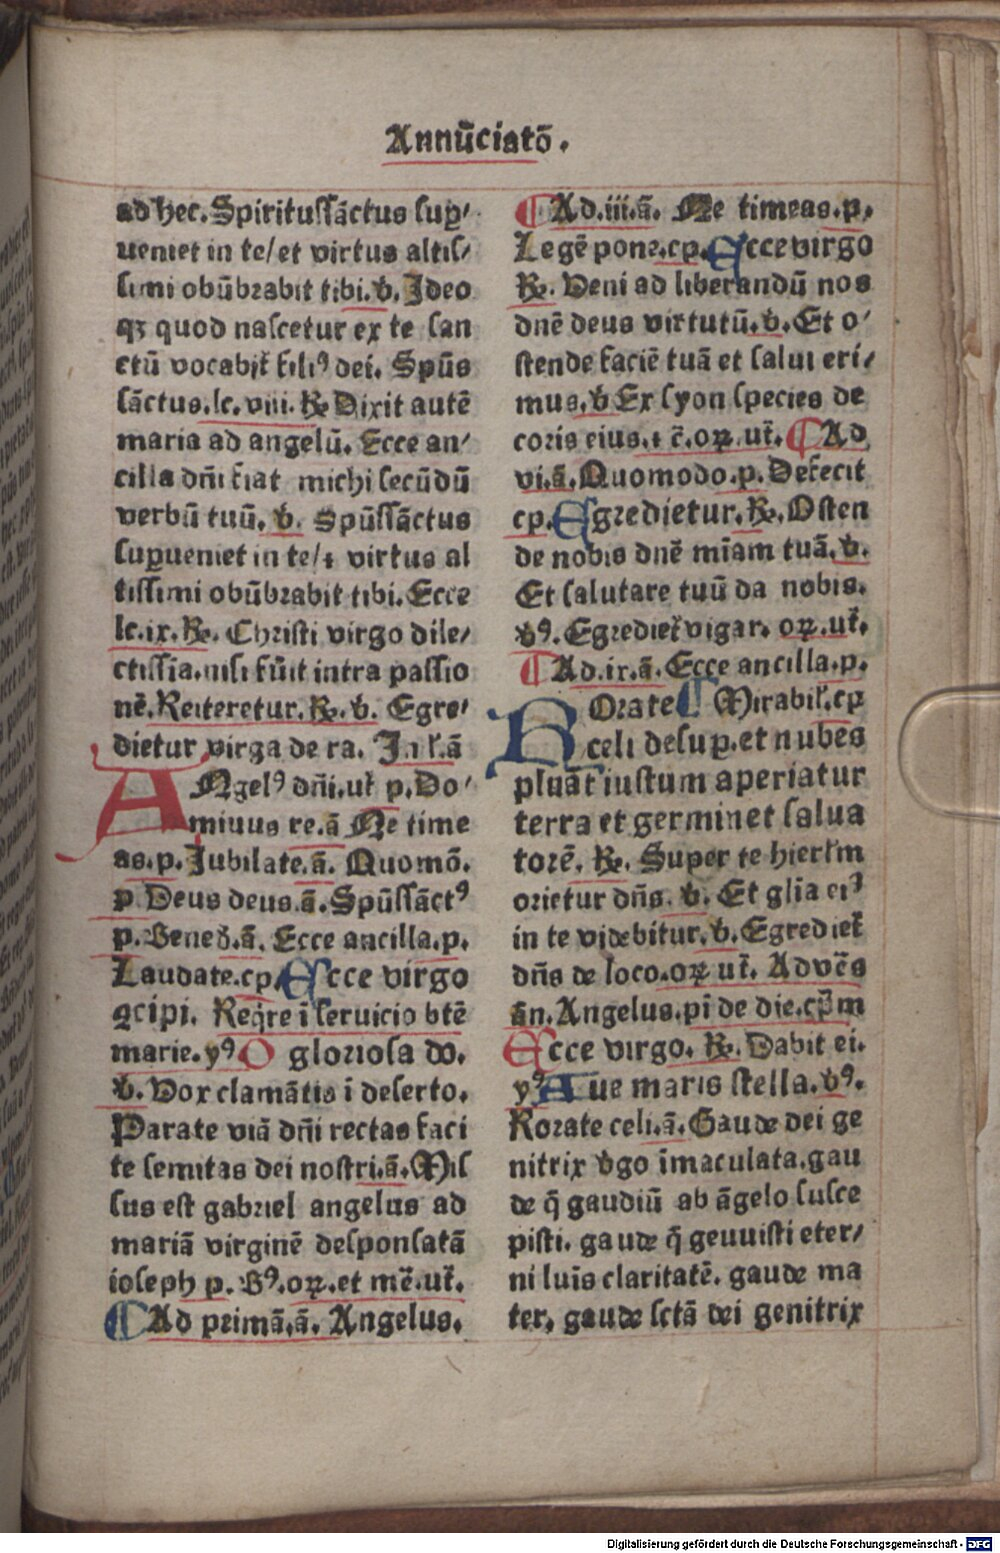 Annūciatō.
ad hec. Spiritussāctus sup̱⸗
ueniet in te/et virtus altis⸗
simi obūbrabit tibi. v̄. Ideo
qꝫ quod nascetur ex te san
ctū vocabit̄ filiꝰ dei. Spūs
sāctus. lc. viii. ꝶ Dixit autē
maria ad angelū. Ecce an⸗
cilla dn̄i fiat michi secūdū
verbū tuū. v̄. Spūssāctus
sup̱ueniet in te/⁊ virtus al
tissimi obūbrabit tibi. Ecce
lc. ix. ꝶ. Christi virgo dile⸗
ctissia. nisi fūit intra passio
nē. Reiteretur. ꝶ. v̄. Egre⸗
dietur virga de ra. In l. ā
ANgelꝰ dn̄i. ut̄ p. Do⸗
minus re. ā Ne time
as. p. Jubilate. ā. Quomō.
p Deus deus. ā. Spūssāctꝰ
p. Bened̄. ā. Ecce ancilla. p.
Laudate. cp. Ecce virgo
ꝯcipi. Reqͥre ī seruicio btē
marie. yꝰ O gloriosa do.
v̄. Vox clamātis i deserto.
Parate viā dn̄i rectas faci
te semitas dei nostri. ā. Mis
sus est gabriel angelus ad
mariā virginē desponsatā
ioseph p. Vꝰ. oꝝ. et mē. ut̄.
¶ Ad primā. ā. Angelus.
¶ Ad. iii. ā. Ne timeas. p.
Legē pone. cp. Ecce virgo
ꝶ. Veni ad liberandū nos
dnē deus virtutū. v̄. Et o⸗
stende faciē tuā et salui eri⸗
mus. v̄ Ex syon species de
coris eius. ⁊ c̄. oꝝ. ut̄. ¶ Ad
vi. ā. Quomodo. p. Defecit
cp. Egredietur. ꝶ. Osten
de nobis dnē mīam tuā. v̄.
Et salutare tuū da nobis.
vꝰ. Egrediet̄ vigar. oꝝ. ut̄.
¶ Ad. ix. ā. Ecce ancilla. p.
ROrate ¶ Mirabil̄. cp
celi desup̱. et nubes
pluāt iustum aperiatur
terra et germinet salua
torē. ꝶ. Super te hierl̄m
orietur dn̄s. v̄. Et gl̄ia eiꝰ
in te videbitur. v̄. Egrediet̄
dn̄s de loco. oꝝ ut̄. Ad vēs
ān. Angelus. pī de die. cp̄m
Ecce virgo. ꝶ. Dabit ei.
yꝰ Aue maris stella. vꝰ.
Rorate celi. ā. Gaude dei ge
nitrix v̄go īmaculata. gau
de q̄ gaudiū ab āgelo susce
pisti. gaude q̄ geuuisti eter⸗
ni luīs claritatē. gaude ma
ter, gaude sctā dei genitrix
Digitalisierung gefördert durch die Deutsche Forschungsgemeinschaft - DFG